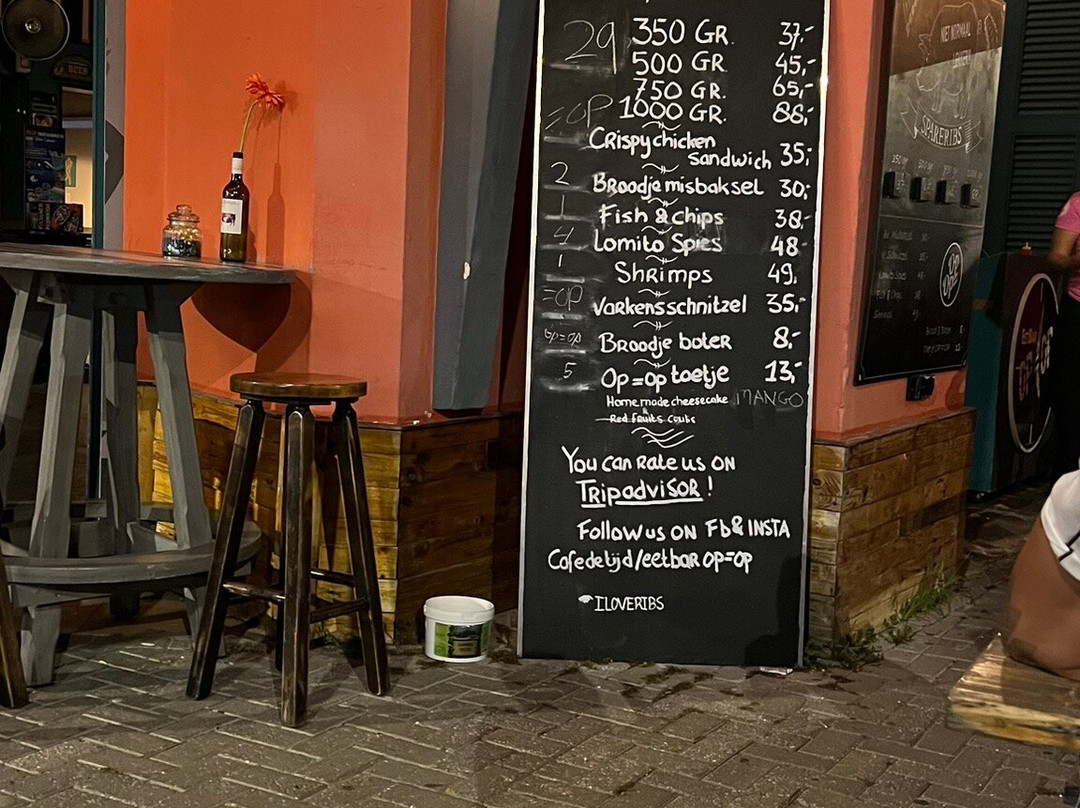 29 350 GR. 37,-
500 GR 45,-
750 GR. 65,-
=OP 1000 GR. 88,-
Crispy chicken
sandwich 35,-
2 Broodje misbaksel 30,-
1 Fish & chips 38,-
4 Lomito Spies 48
1 Shrimps 49,
=OP Varkensschnitzel 35,-
OP=OP Broodje boter 8,-
5 Op=op toetje 13,-
Homemade cheesecake MANGO
Red fruits
You can Rate us on
Tripadvisor!
Follow us on Fb & INSTA
Cafedetijd/eetbar op=op
ILOVERIBS
NIET NORMAAL
SPARERIBS
BEER